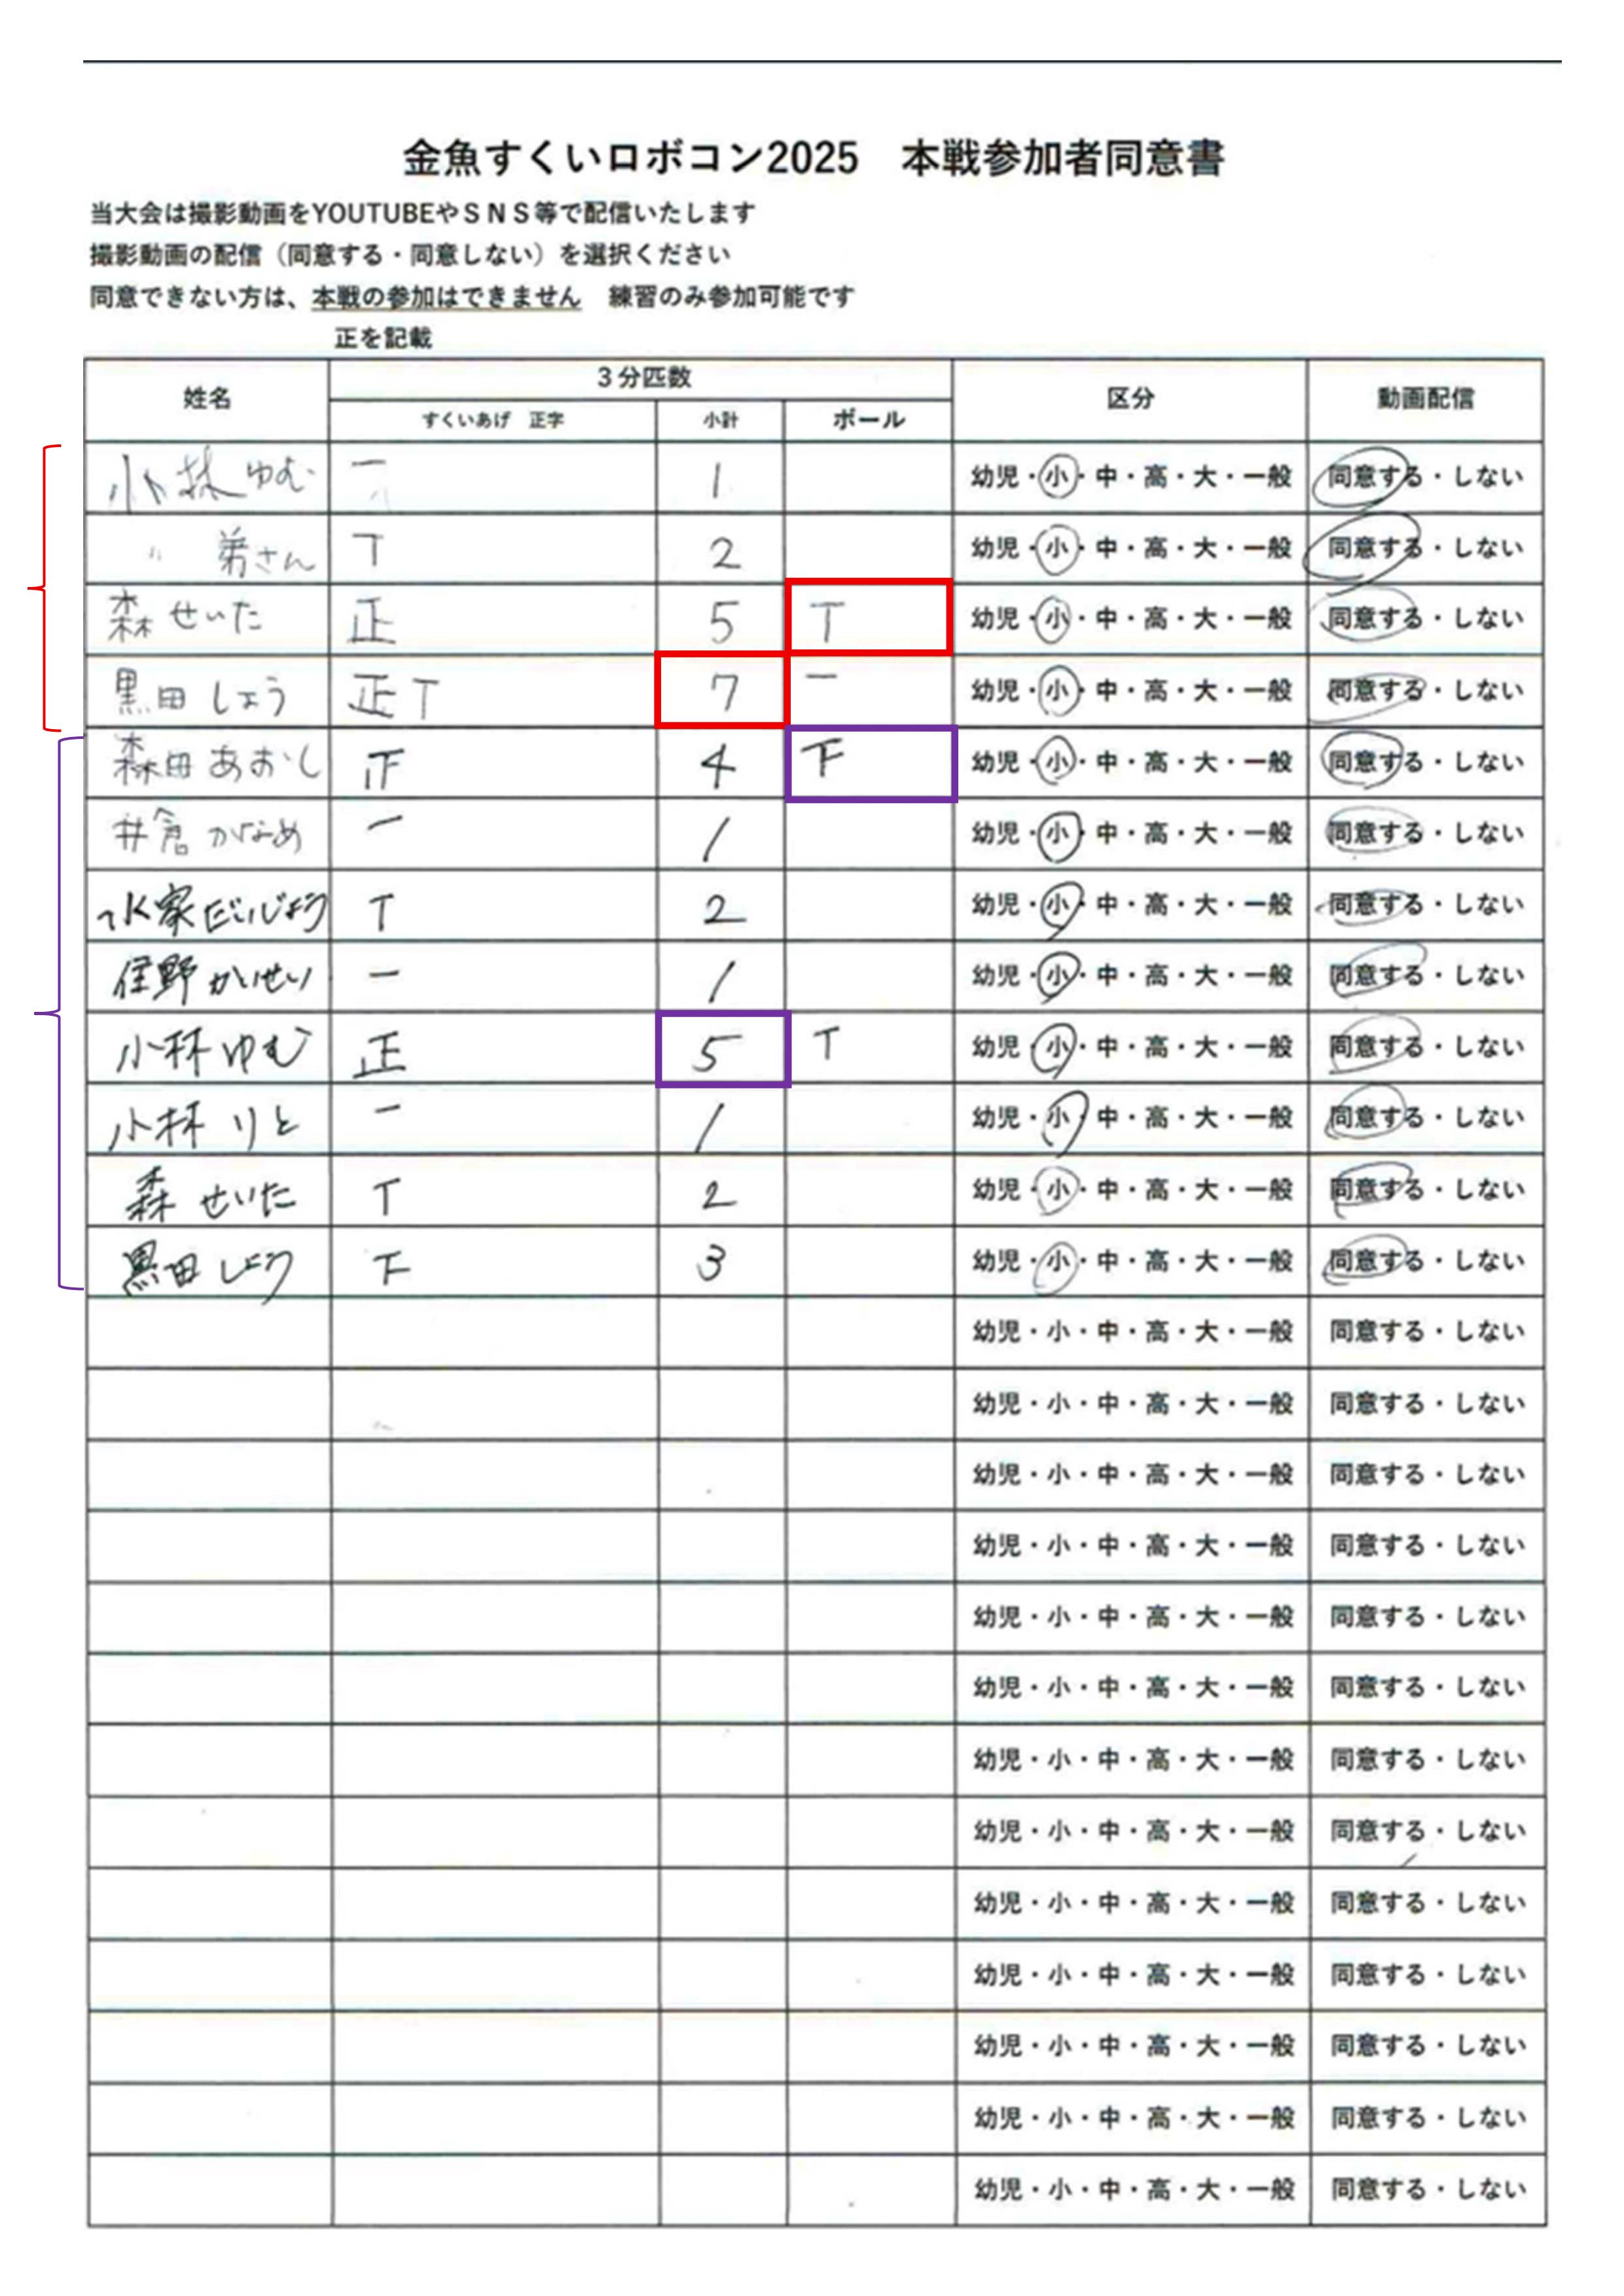 金魚すくいロボコン2025　本戦参加者同意書
当大会は撮影動画をYOUTUBEやＳＮＳ等で配信いたします
撮影動画の配信（同意する・同意しない）を選択ください
同意できない方は、本戦の参加はできません　練習のみ参加可能です
正を記載
姓名 ３分匹数 区分 動画配信
すくいあげ　正字 小計 ボール
小林ゆむ 一 1 幼児・小・中・高・大・一般 同意する・しない
〃 弟さん T 2 幼児・小・中・高・大・一般 同意する・しない
森 せいた 正 5 T 幼児・小・中・高・大・一般 同意する・しない
黒田 しょう 正T 7 一 幼児・小・中・高・大・一般 同意する・しない
森田 あおし 4 下 幼児・小・中・高・大・一般 同意する・しない
井倉 かなめ 一 1 幼児・小・中・高・大・一般 同意する・しない
家だいじょう T 2 幼児・小・中・高・大・一般 同意する・しない
野 かいせい 一 1 幼児・小・中・高・大・一般 同意する・しない
小林ゆむ 正 5 T 幼児・小・中・高・大・一般 同意する・しない
小林 りと 一 1 幼児・小・中・高・大・一般 同意する・しない
森 せいた T 2 幼児・小・中・高・大・一般 同意する・しない
黒田 しょう 下 3 幼児・小・中・高・大・一般 同意する・しない
幼児・小・中・高・大・一般 同意する・しない
幼児・小・中・高・大・一般 同意する・しない
幼児・小・中・高・大・一般 同意する・しない
幼児・小・中・高・大・一般 同意する・しない
幼児・小・中・高・大・一般 同意する・しない
幼児・小・中・高・大・一般 同意する・しない
幼児・小・中・高・大・一般 同意する・しない
幼児・小・中・高・大・一般 同意する・しない
幼児・小・中・高・大・一般 同意する・しない
幼児・小・中・高・大・一般 同意する・しない
幼児・小・中・高・大・一般 同意する・しない
幼児・小・中・高・大・一般 同意する・しない
幼児・小・中・高・大・一般 同意する・しない